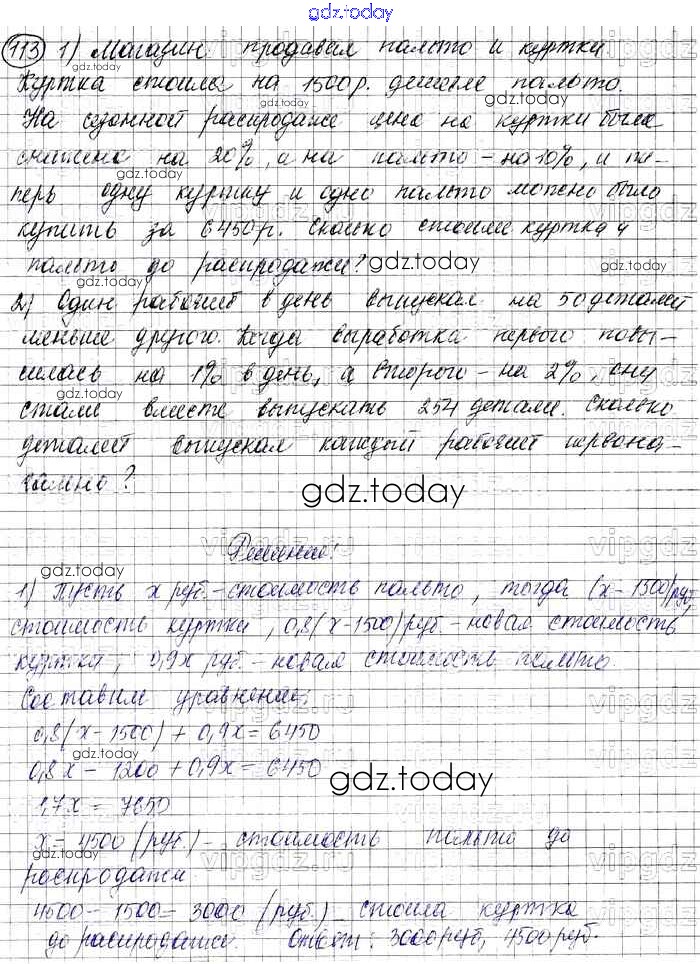 gdz.today
113 1) Магазин продавал пальто и куртки.
Куртка стоила на 1500р. дешевле пальто.
На сезонной распродаже цена на куртки была
снижена на 20%, а на пальто - на 10%, и те-
перь одну куртку и одно пальто можно было
купить за 6450р. Сколько стоили куртка и
пальто до распродажи?
2) Один рабочий в день выпускал на 50 деталей
меньше другого. Когда выработка первого повы-
силась на 1% в день, а второго - на 2%, они
стали вместе выпускать 254 детали. Сколько
деталей выпускал каждый рабочий первона-
чально?
gdz.today
Решение:
1) Пусть x руб. - стоимость пальто, тогда (x-1500)руб
стоимость куртки, 0,8(x-1500)руб - новая стоимость
куртки, 0,9x руб. - новая стоимость пальто.
Составим уравнение:
0,8(x-1500) + 0,9x = 6450
0,8x - 1200 + 0,9x = 6450
gdz.today
1,7x = 7650
x = 4500 (руб.) - стоимость пальто до
распродажи
4500 - 1500 = 3000 (руб.) - стоила куртка
до распродажи. Ответ: 3000руб, 4500руб.